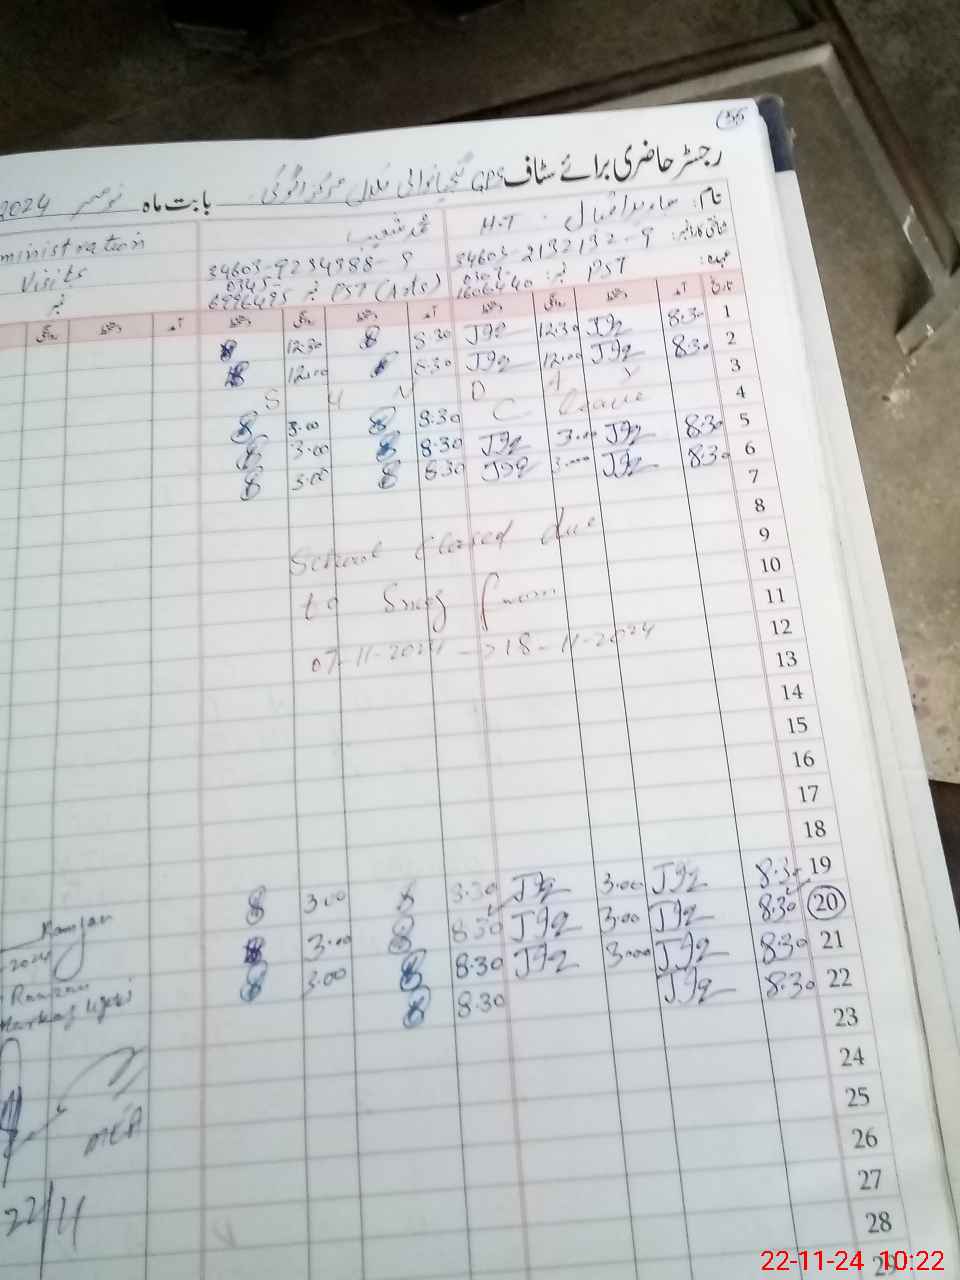 56
رجسٹر حاضری برائے سٹاف GPS
بابت ماہ نومبر 2024
نام: جاوید اقبال H.T
محمد شعیب
ministration
Visits
شناختی کارڈ نمبر: 34603-2132132-9
34603-9234988-9
عہدہ: PST
نمبر
PST (Arts) نمبر 0345-
تاریخ آمد دستخط روانگی دستخط آمد دستخط روانگی دستخط آمد دستخط روانگی
1 8:30 J92 12:30 J92 8:30 12:30
2 8:30 J92 12:00 J92 8:30 12:00
3 S U N D A Y
4 C. leave 8:30 3:00
5 8:30 J92 3:00 J92 8:30 3:00
6 8:30 J92 3:00 J92 8:30 3:00
7
8 School closed due
9
10 to Smog from
11
12 07-11-2024 -> 18-11-2024
13
14
15
16
17
18
19 8:30 J92 3:00 J92 8:30 3:00
20 8:30 J92 3:00 J92 8:30 3:00
21 8:30 J92 3:00 J92 8:30 3:00
22 8:30 J92 8:30
23
24
25
26
27
28
29
2024
Markaz
22/11
22-11-24 10:22